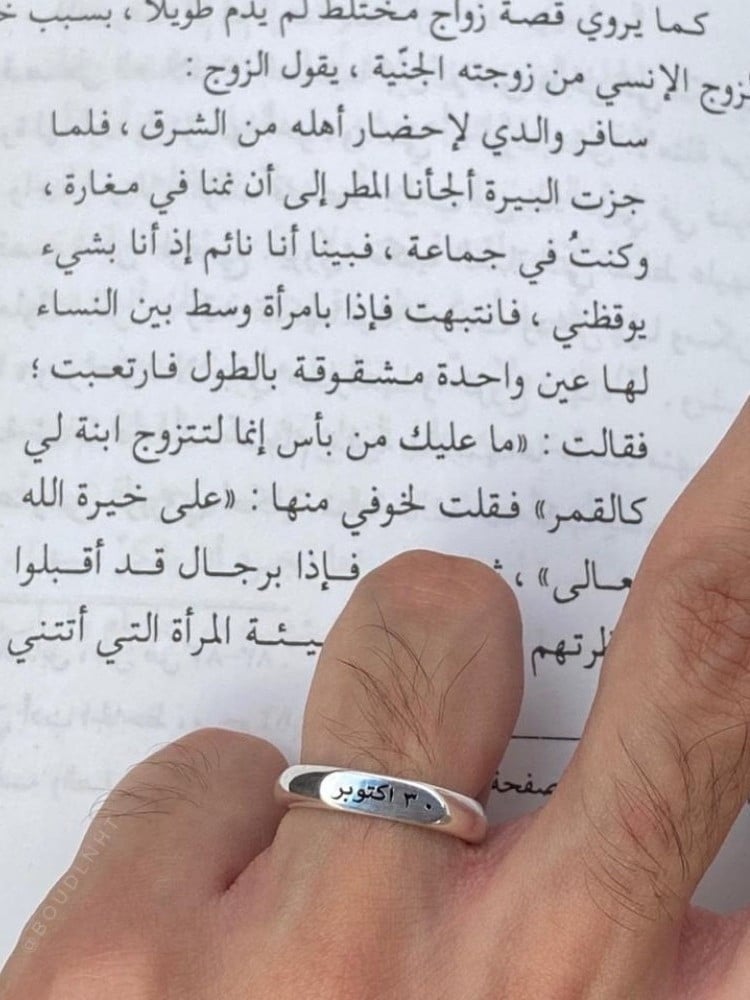 كما يروي قصة زواج مختلط لم يدم طويلاً ، بسبب
الزوج الإنسي من زوجته الجنّية ، يقول الزوج :
سافر والدي لإحضار أهله من الشرق ، فلما
جزت البيرة ألجأنا المطر إلى أن نمنا في مغارة ،
وكنتُ في جماعة ، فبينا أنا نائم إذ أنا بشيء
يوقظني ، فانتبهت فإذا بامرأة وسط بين النساء
لها عين واحدة مشقوقة بالطول فارتعبت ؛
فقالت : «ما عليك من بأس إنما لتتزوج ابنة لي
كالقمر» فقلت لخوفي منها . «على خيرة الله
تعالى» ، فإذا برجال قد أقبلوا
المرأة التي أتتني
صفحة
٣٠ اكتوبر
@BOUDLNHT